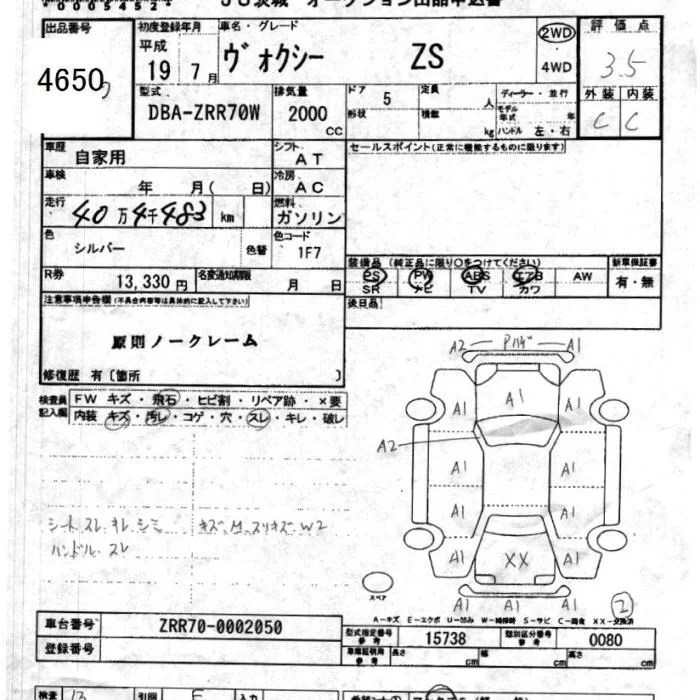 00054524
JU茨城 オークション出品申込書
出品番号
4650
初度登録年月
平成
19 7月
車名・グレード
ヴォクシー ZS
2WD
4WD
評価点
3.5
外装 内装
C C
型式
DBA-ZRR70W
排気量
2000
CC
ドア 5
形状
定員 人
積載 kg
ディーラー・並行
モデル年式 年
ハンドル 左・右
車歴
自家用
シフト
AT
セールスポイント(正常に機能するものに限ります)
車検
年 月( 日)
冷房
AC
走行
40万4千483 km
燃料
ガソリン
色
シルバー
色替
色コード
1F7
装備品(純正品に限り○をつけてください)
PS PW ABS エアB AW
SR ナビ TV カワ
新車保証書
有・無
R券
13,330円
名変通知期限
月 日
後日品
注意事項申告欄(不具合内容等は具体的に記入して下さい)
原則ノークレーム
修復歴 有〔箇所 〕
検査員記入欄
FW キズ・飛石・ヒビ割・リペア跡・×要
内装 キズ・汚レ・コゲ・穴・スレ・キレ・破レ
シートスレ.キレ.シミ
ハンドル スレ
A2 Pバンパ A1
A1 A1 A1
A2
A1 A1
A1 A1
A1 XX A1
A1 A1 A1
スペア
2
A-キズ E-エクボ U-凹み W-補修跡 S-サビ C-腐食 XX-交換済
車台番号
ZRR70-0002050
登録番号
型式指定番号
参考
15738
類別区分番号
参考
0080
車庫証明用
参考
長さ cm
幅 cm
高さ cm
検査
引回
入力